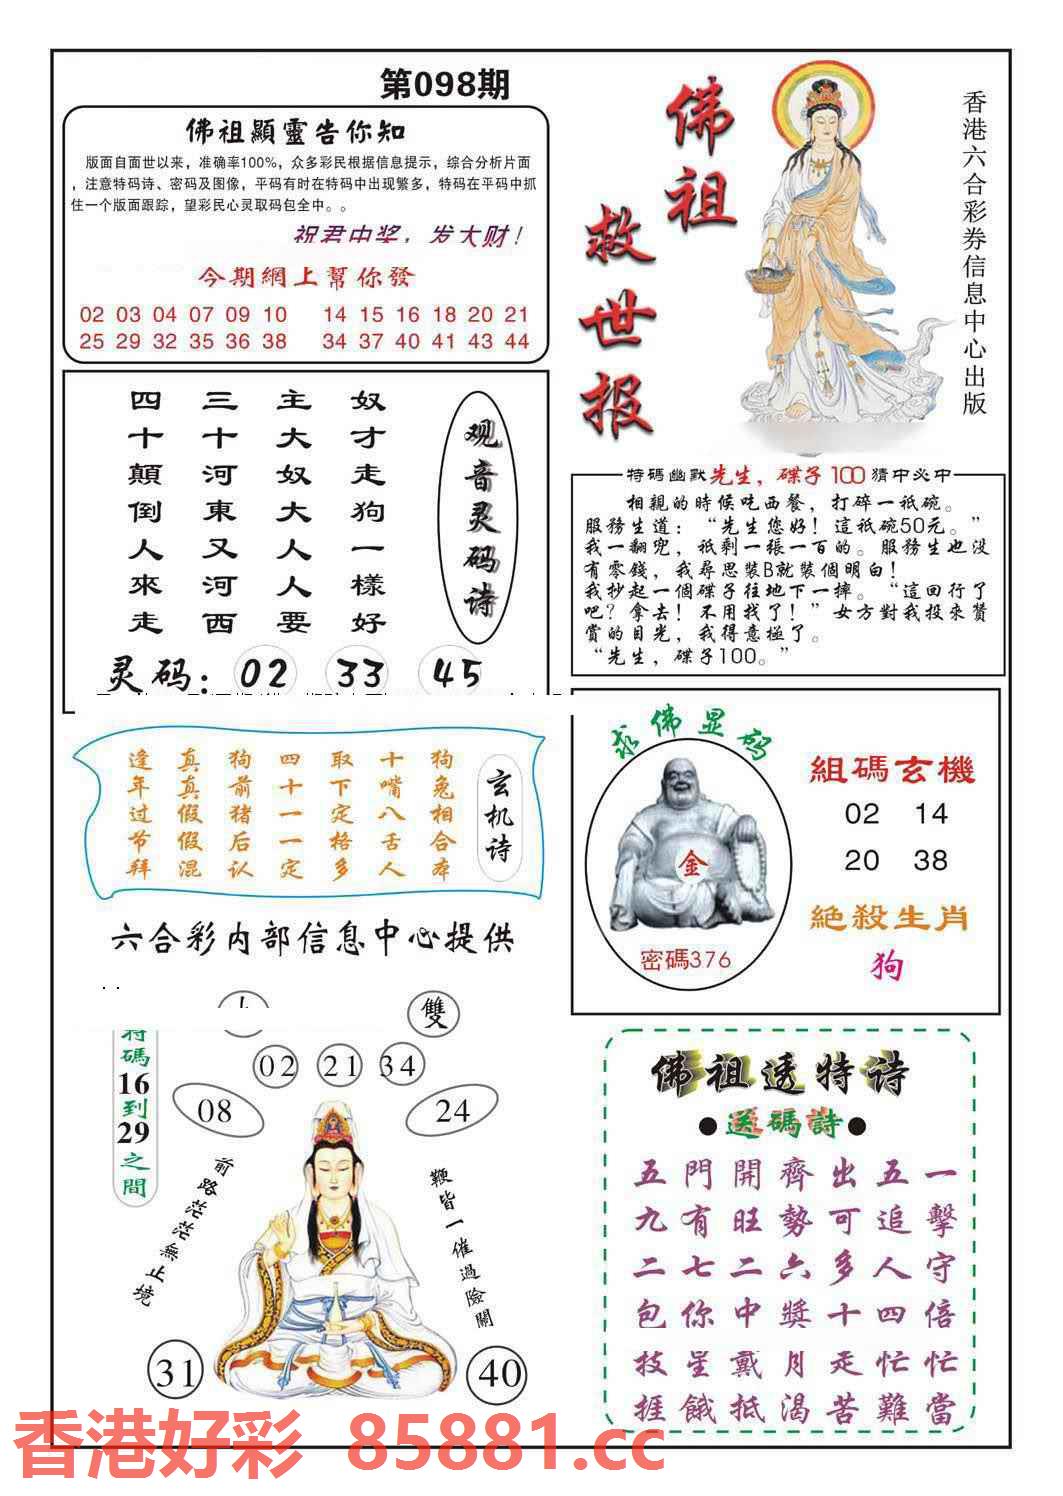 第098期
佛祖顯靈告你知
版面自面世以来，准确率100%，众多彩民根据信息提示，综合分析片面
，注意特码诗、密码及图像，平码有时在特码中出现繁多，特码在平码中抓
住一个版面跟踪，望彩民心灵取码包全中。。
祝君中奖，发大财！
今期網上幫你發
02 03 04 07 09 10 14 15 16 18 20 21
25 29 32 35 36 38 34 37 40 41 43 44
佛祖
救世报
香港六合彩券信息中心出版
观音灵码诗
奴才走狗一樣好
主大奴大人人要
三十河東又河西
四十顛倒人來走
灵码：02 33 45
特碼幽默先生，碟子100猜中必中
相親的時候吃西餐，打碎一衹碗。
服務生道：“先生您好！這衹碗50元。”
我一翻兜，衹剩一張一百的。服務生也没
有零錢，我尋思裝B就裝個明白！
我抄起一個碟子往地下一摔。“這回行了
吧？拿去！不用找了！”女方對我投來贊
賞的目光，我得意極了。
“先生，碟子100。”
玄机诗
狗兔相合本
十嘴八舌人
取下定格多
四十一一定
狗前猪后认
真真假假混
逢年过节拜
六合彩内部信息中心提供
求佛显码
金
密碼376
組碼玄機
02 14
20 38
絕殺生肖
狗
雙
02 21 34
08 24
特碼16到29之間
前路茫茫無止境
鞭皆一催過險關
31 40
佛祖透特诗
●送碼詩●
五門開齊出五一
九有旺勢可追擊
二七二六多人守
包你中獎十四倍
披星戴月走忙忙
捱餓抵渴苦難當
香港好彩 85881.cc